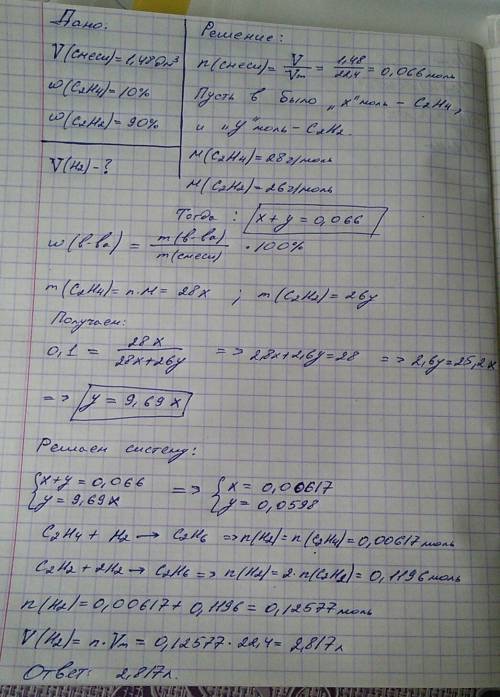 Дано:
V(смеси)=1,48 дм³
w(C2H4)=10%
w(C2H2)=90%
V(H2)-?
Решение:
n(смеси)= V/Vm = 1,48/22,4 = 0,066 моль
Пусть в было „x" моль - C2H4,
и „y" моль - C2H2.
M(C2H4)=28 г/моль
M(C2H2)=26 г/моль
Тогда : x+y=0,066
w(в-ва) = m(в-ва)/m(смеси) · 100%
m(C2H4)=n·M= 28x ; m(C2H2)=26y
Получаем:
0,1 = 28x/28x+26y => 2,8x+2,6y=28 => 2,6y=25,2x
=> y=9,69x
Решаем систему:
{x+y=0,066 => {x=0,00617
{y=9,69x {y=0,0598
C2H4 + H2 → C2H6 => n(H2)=n(C2H4)=0,00617 моль
C2H2 + 2H2 → C2H6 => n(H2)=2·n(C2H2)=0,1196 моль
n(H2)=0,00617+0,1196=0,12577 моль
V(H2)=n·Vm=0,12577·22,4=2,817 л
Ответ: 2,817 л.